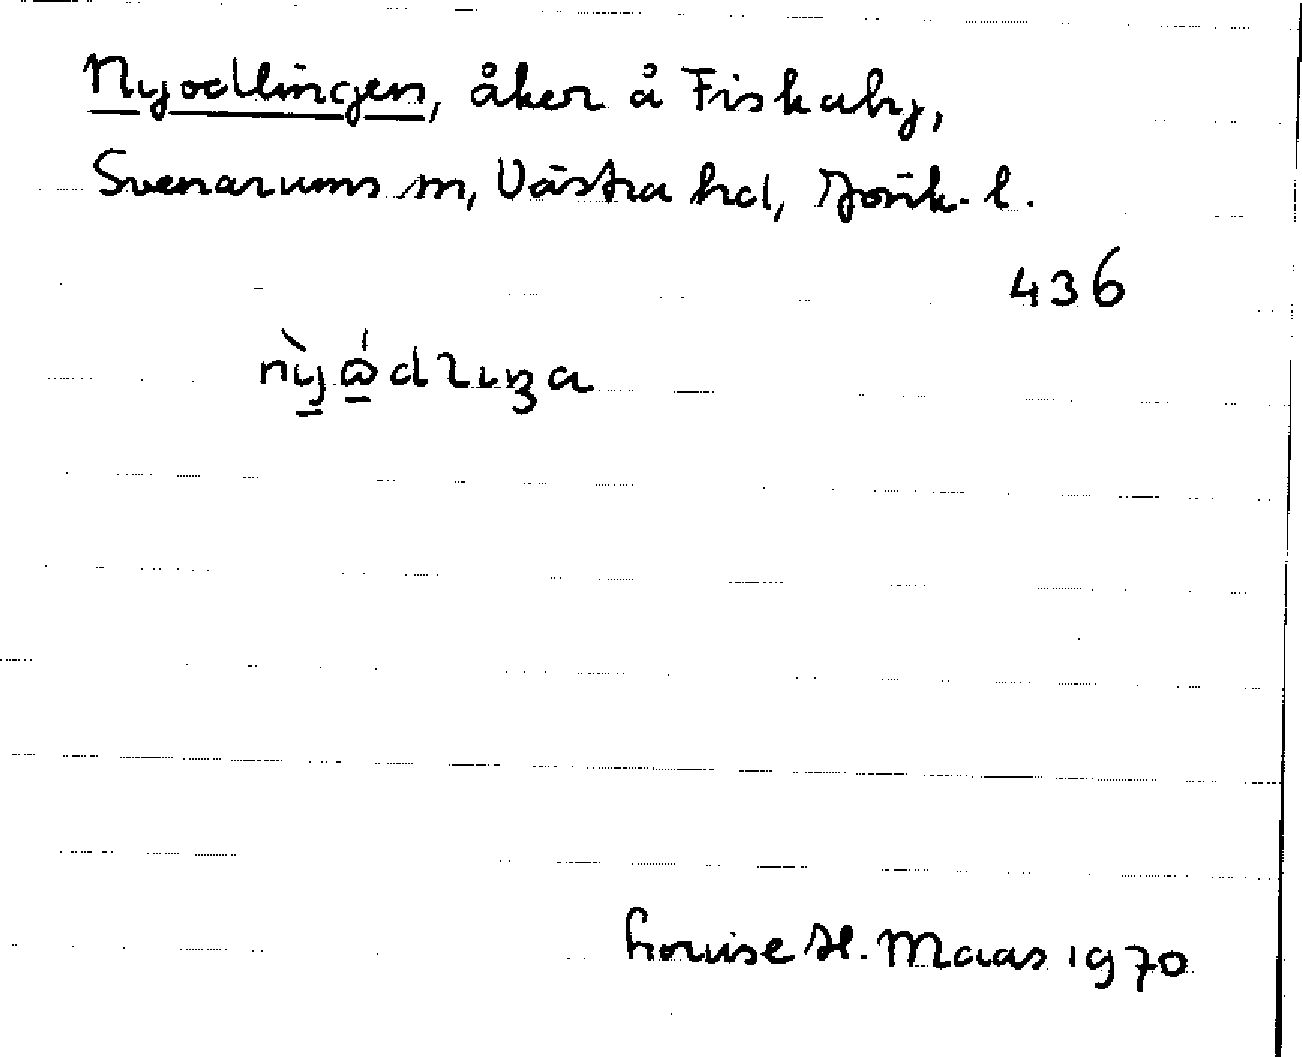 Nyodlingen, åker å Fiskaby,
Svenarums sn, Västra hd, Jönk. l.
436
Louise H. Maas 1970